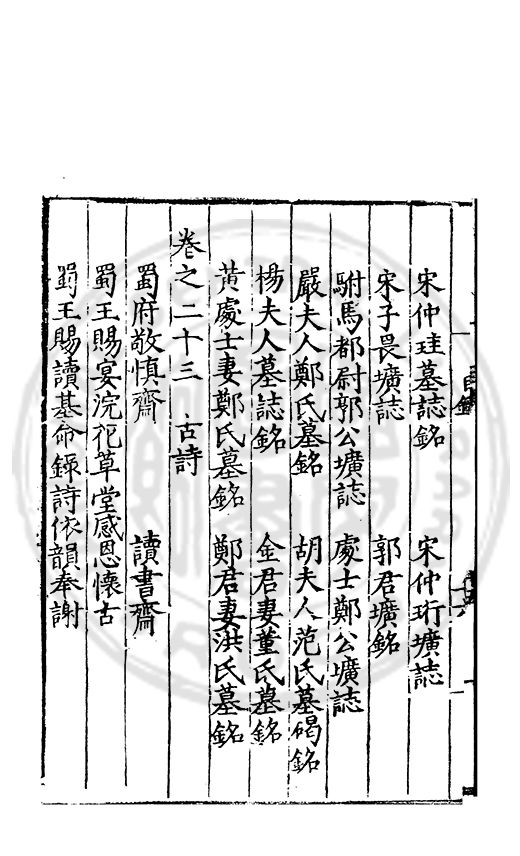 宋仲珪墓誌銘　宋仲珩壙誌
宋子畏壙誌　郭君壙銘
駙馬都尉郭公壙誌　處士鄭公壙誌
嚴夫人鄭氏墓銘　胡夫人范氏墓碣銘
楊夫人墓誌銘　金君妻董氏墓銘
黃處士妻鄭氏墓銘　鄭君妻洪氏墓銘
卷之二十三　古詩
蜀府敬慎齋　讀書齋
蜀王賜宴浣花草堂感恩懷古
蜀王賜讀基命錄詩依韻奉謝